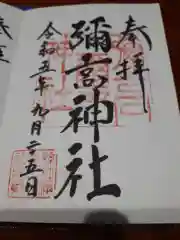 奉拝
彌高神社
令和五年九月二五日